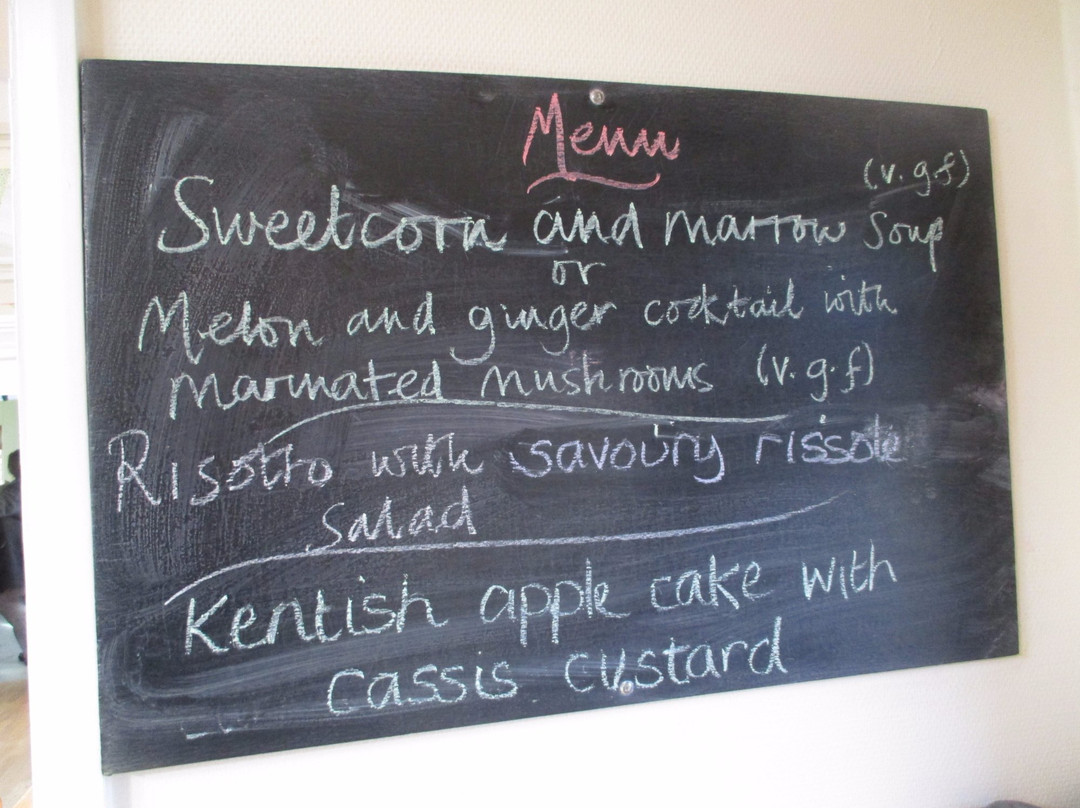 Menu
(v. g f)
Sweetcorn and marrow Soup
or
Melon and ginger cocktail with
marinated mushrooms (v. g. f)
Risotto with savoury rissole
Salad
Kentish apple cake with
cassis custard